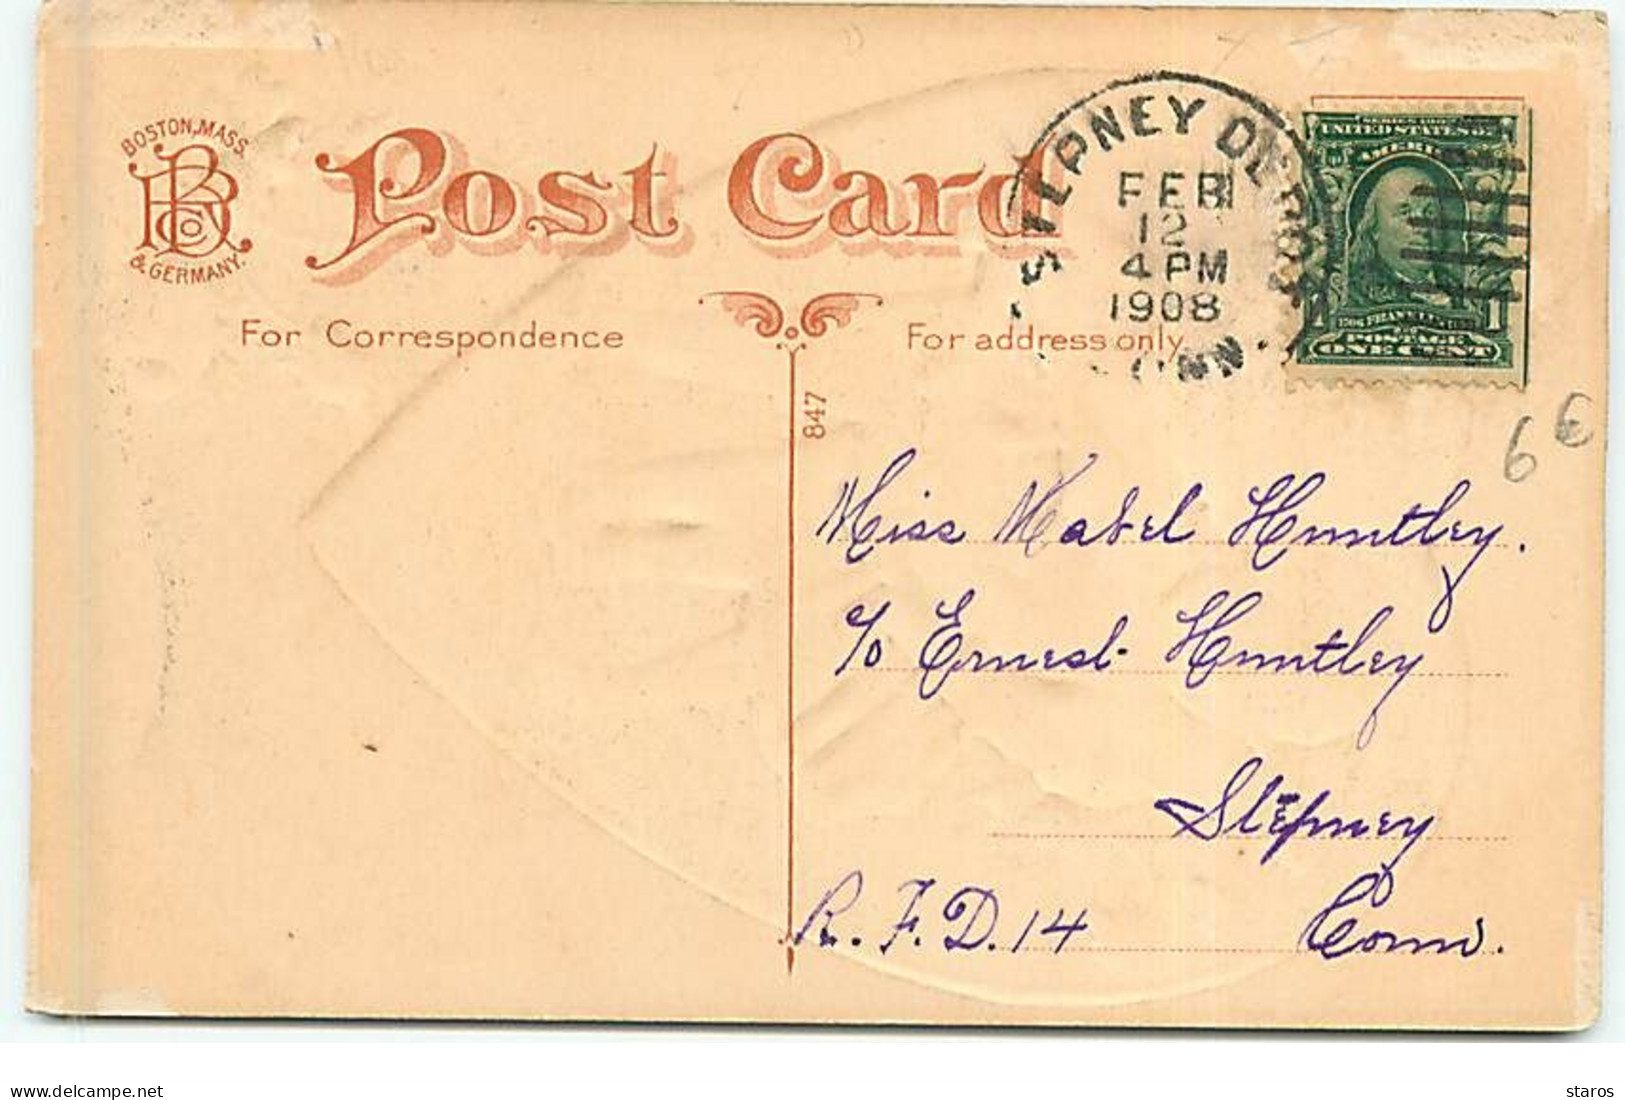 BOSTON, MASS.
BB Co
& GERMANY.
Post Card
For Correspondence
For address only
847
STEPNEY DEPOT
FEB
12
4 PM
1908
CONN.
UNITED STATES OF
AMERICA
1706 FRANKLIN 1790
1 1
POSTAGE
ONE CENT
6 €
Miss Mabel Huntley.
c/o Ernest Huntley
Stepney
R. F. D. 14 Conn.
delcampe.net
staros